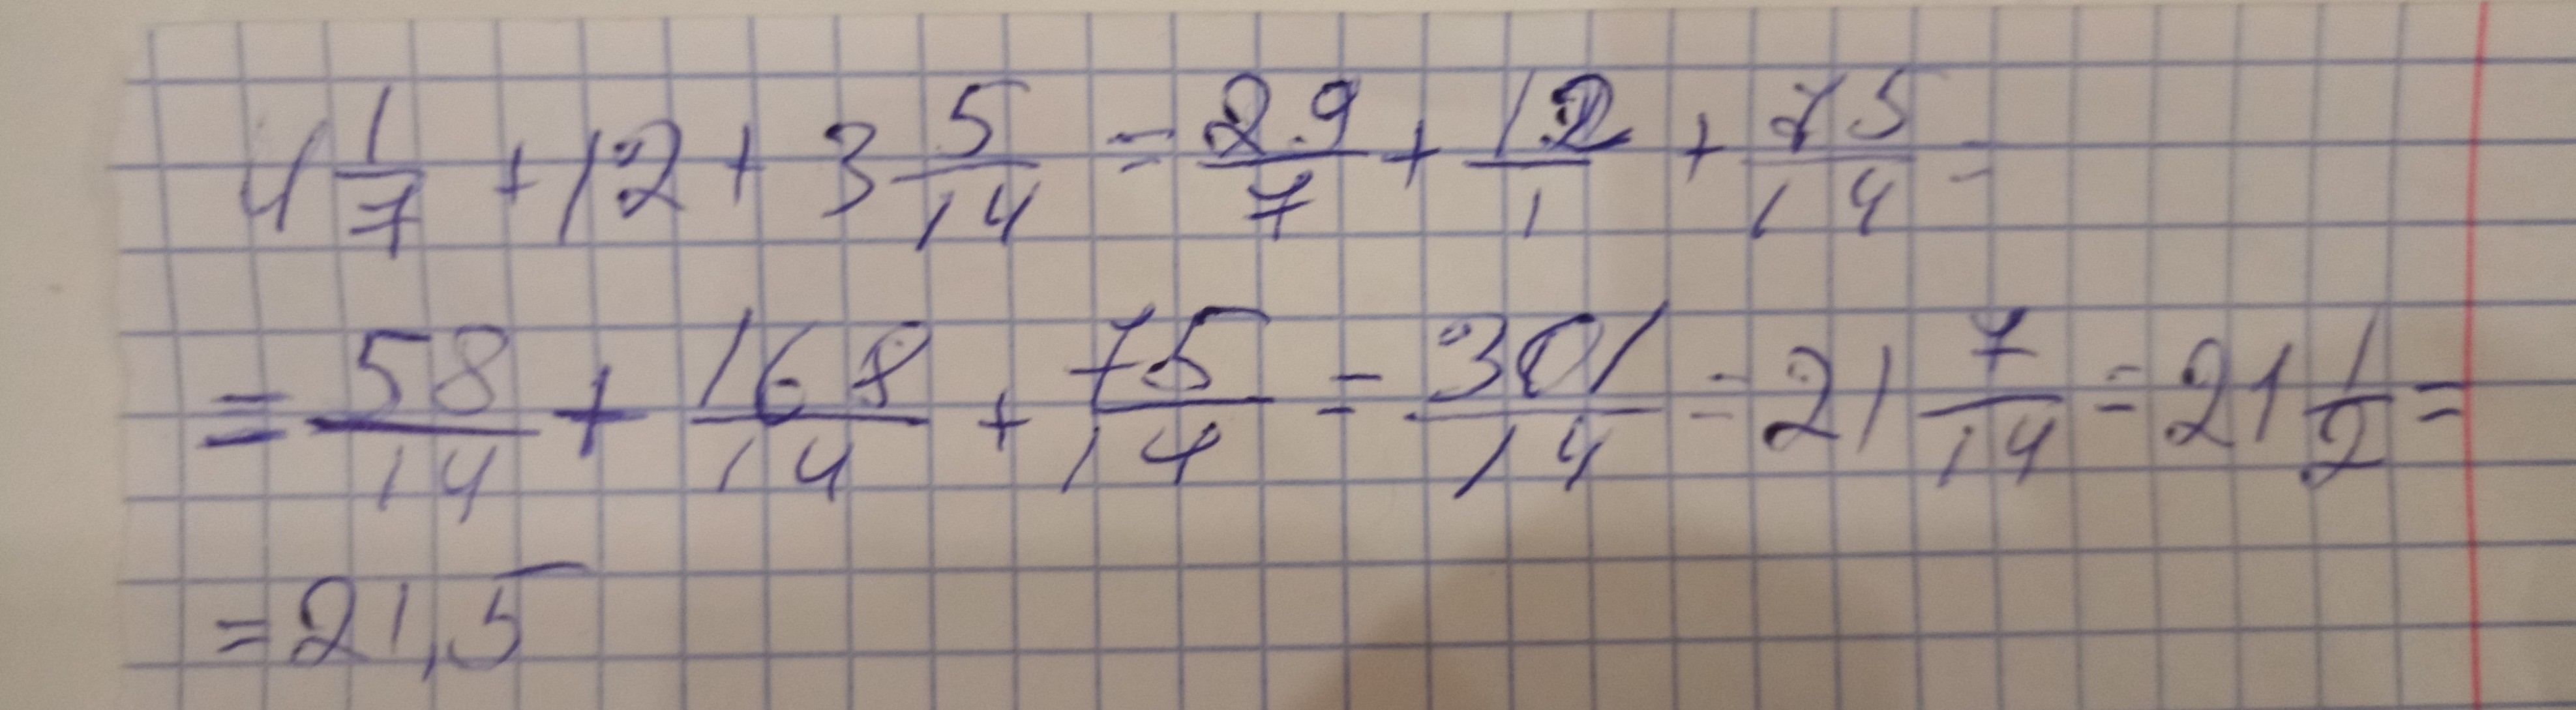 4 1/7 + 12 + 3 5/14 = 29/7 + 12/1 + 75/14 =
= 58/14 + 168/14 + 75/14 = 301/14 = 21 7/14 = 21 1/2 =
= 21,5